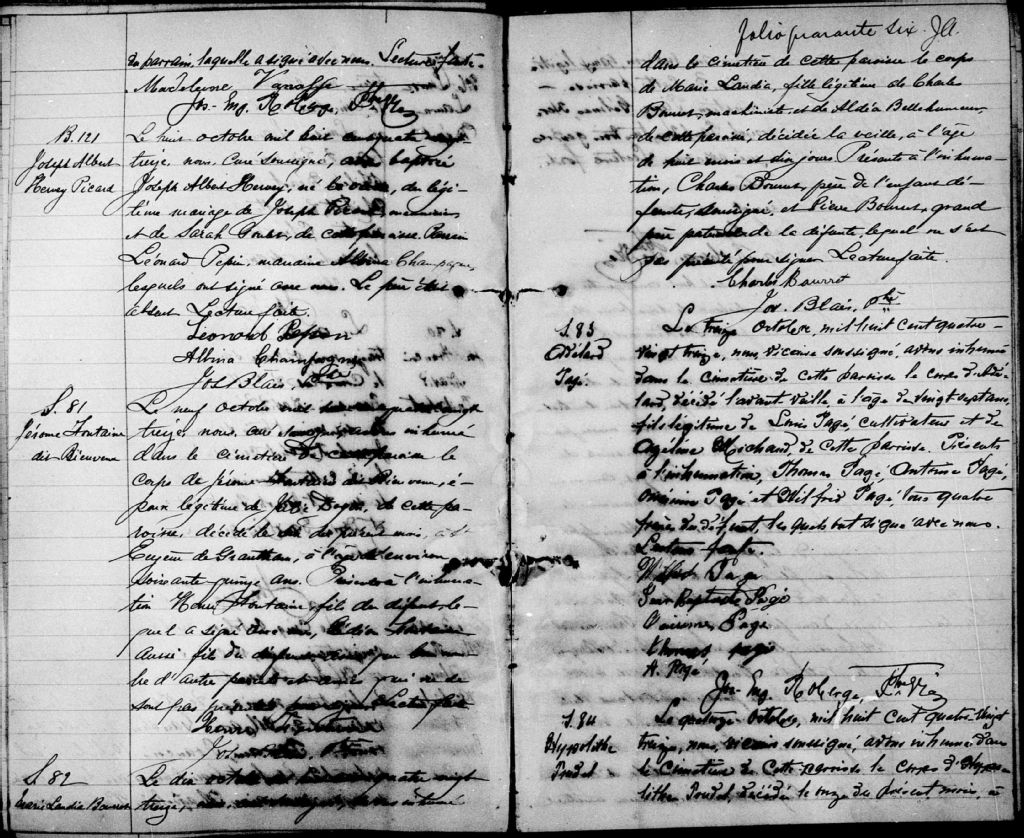 du parrain, laquelle a signé avec nous. Lecture faite.
Madeleine Vanasse
Jos-Eug. Roberge, Ptre Vic
B. 121
Joseph Albert
Henry Picard
Le huit octobre mil huit cent quatre vingt
treize, nous, Curé soussigné, avons baptisé
Joseph Albert Henry, né la veille, du légi-
time mariage de Joseph Picard, menuisier
et de Sarah, de cette paroisse. Parrain
Léonard Pepin, marraine Albina Champagne,
lesquels ont signé avec nous. Le père était
absent. Lecture faite.
Leonard Pepin
Albina Champagne
Jos. Blais, Ptre
S. 81
Jérome Fontaine
dit Bienvenu
Le neuf octobre mil huit cent quatre vingt
treize, nous, curé soussigné, avons inhumé
dans le cimetière de cette paroisse le
corps de Jérome Fontaine dit Bienvenu, é-
poux légitime de, de cette pa-
roisse, décédé le du présent mois, à St
Eugène de Grantham, à l'âge d'environ
soixante quinze ans. Présents à l'inhuma-
tion Henri Fontaine, fils du défunt, le-
quel a signé avec nous, Fontaine
aussi fils du défunt ainsi que bon nom-
bre d'autres parents et amis qui ne
sont pas Lecture faite
Henri Fontaine
S. 82
Marie Landia Bourret
Le dix octobre mil huit cent quatre vingt
treize, nous, curé soussigné, avons inhumé
folio quarante six. JA.
dans le cimetière de cette paroisse le corps
de Marie Landia, fille légitime de Charles
Bourret, machiniste et de Aldéa Bellehumeur,
de cette paroisse, décédée la veille, à l'âge
de huit mois et dix jours. Présents à l'inhuma-
tion, Charles Bourret, père de l'enfant dé-
funte, soussigné, et Pierre Bourret, grand
père paternel de la défunte, lequel ne s'est
pas présenté pour signer. Lecture faite
Charles Bourret
Jos. Blais, Ptre
S. 83
Adélard
Pagé.
Le treize Octobre, mil huit cent quatre-
vingt treize, nous, vicaire soussigné, avons inhumé
dans le cimetière de cette paroisse le corps d'Adé-
lard, décédé l'avant veille à l'age de vingt sept ans,
fils légitime de Louis Pagé, cultivateur et de
Angéline Marchand, de cette paroisse. Présents
à l'inhumation, Thomas Pagé, Antoine Pagé,
Onésime Pagé et Wilfrid Pagé, tous quatre
frères du défunt, lesquels ont signé avec nous.
Lecture faite.
Wilfrid Page
Jean Baptiste Pagé
Onésime Pagé
Thomas Pagé
A. Pagé
Jos-Eug. Roberge, Ptre Vic
S. 84
Hyppolithe
Poudet
Le quatorze Octobre, mil huit cent quatre-vingt
treize, nous, vicaire soussigné, avons inhumé dans
le Cimetière de Cette paroisse le Corps d'Hyppo-
lithe Poudet, décédé le onze du présent mois, à